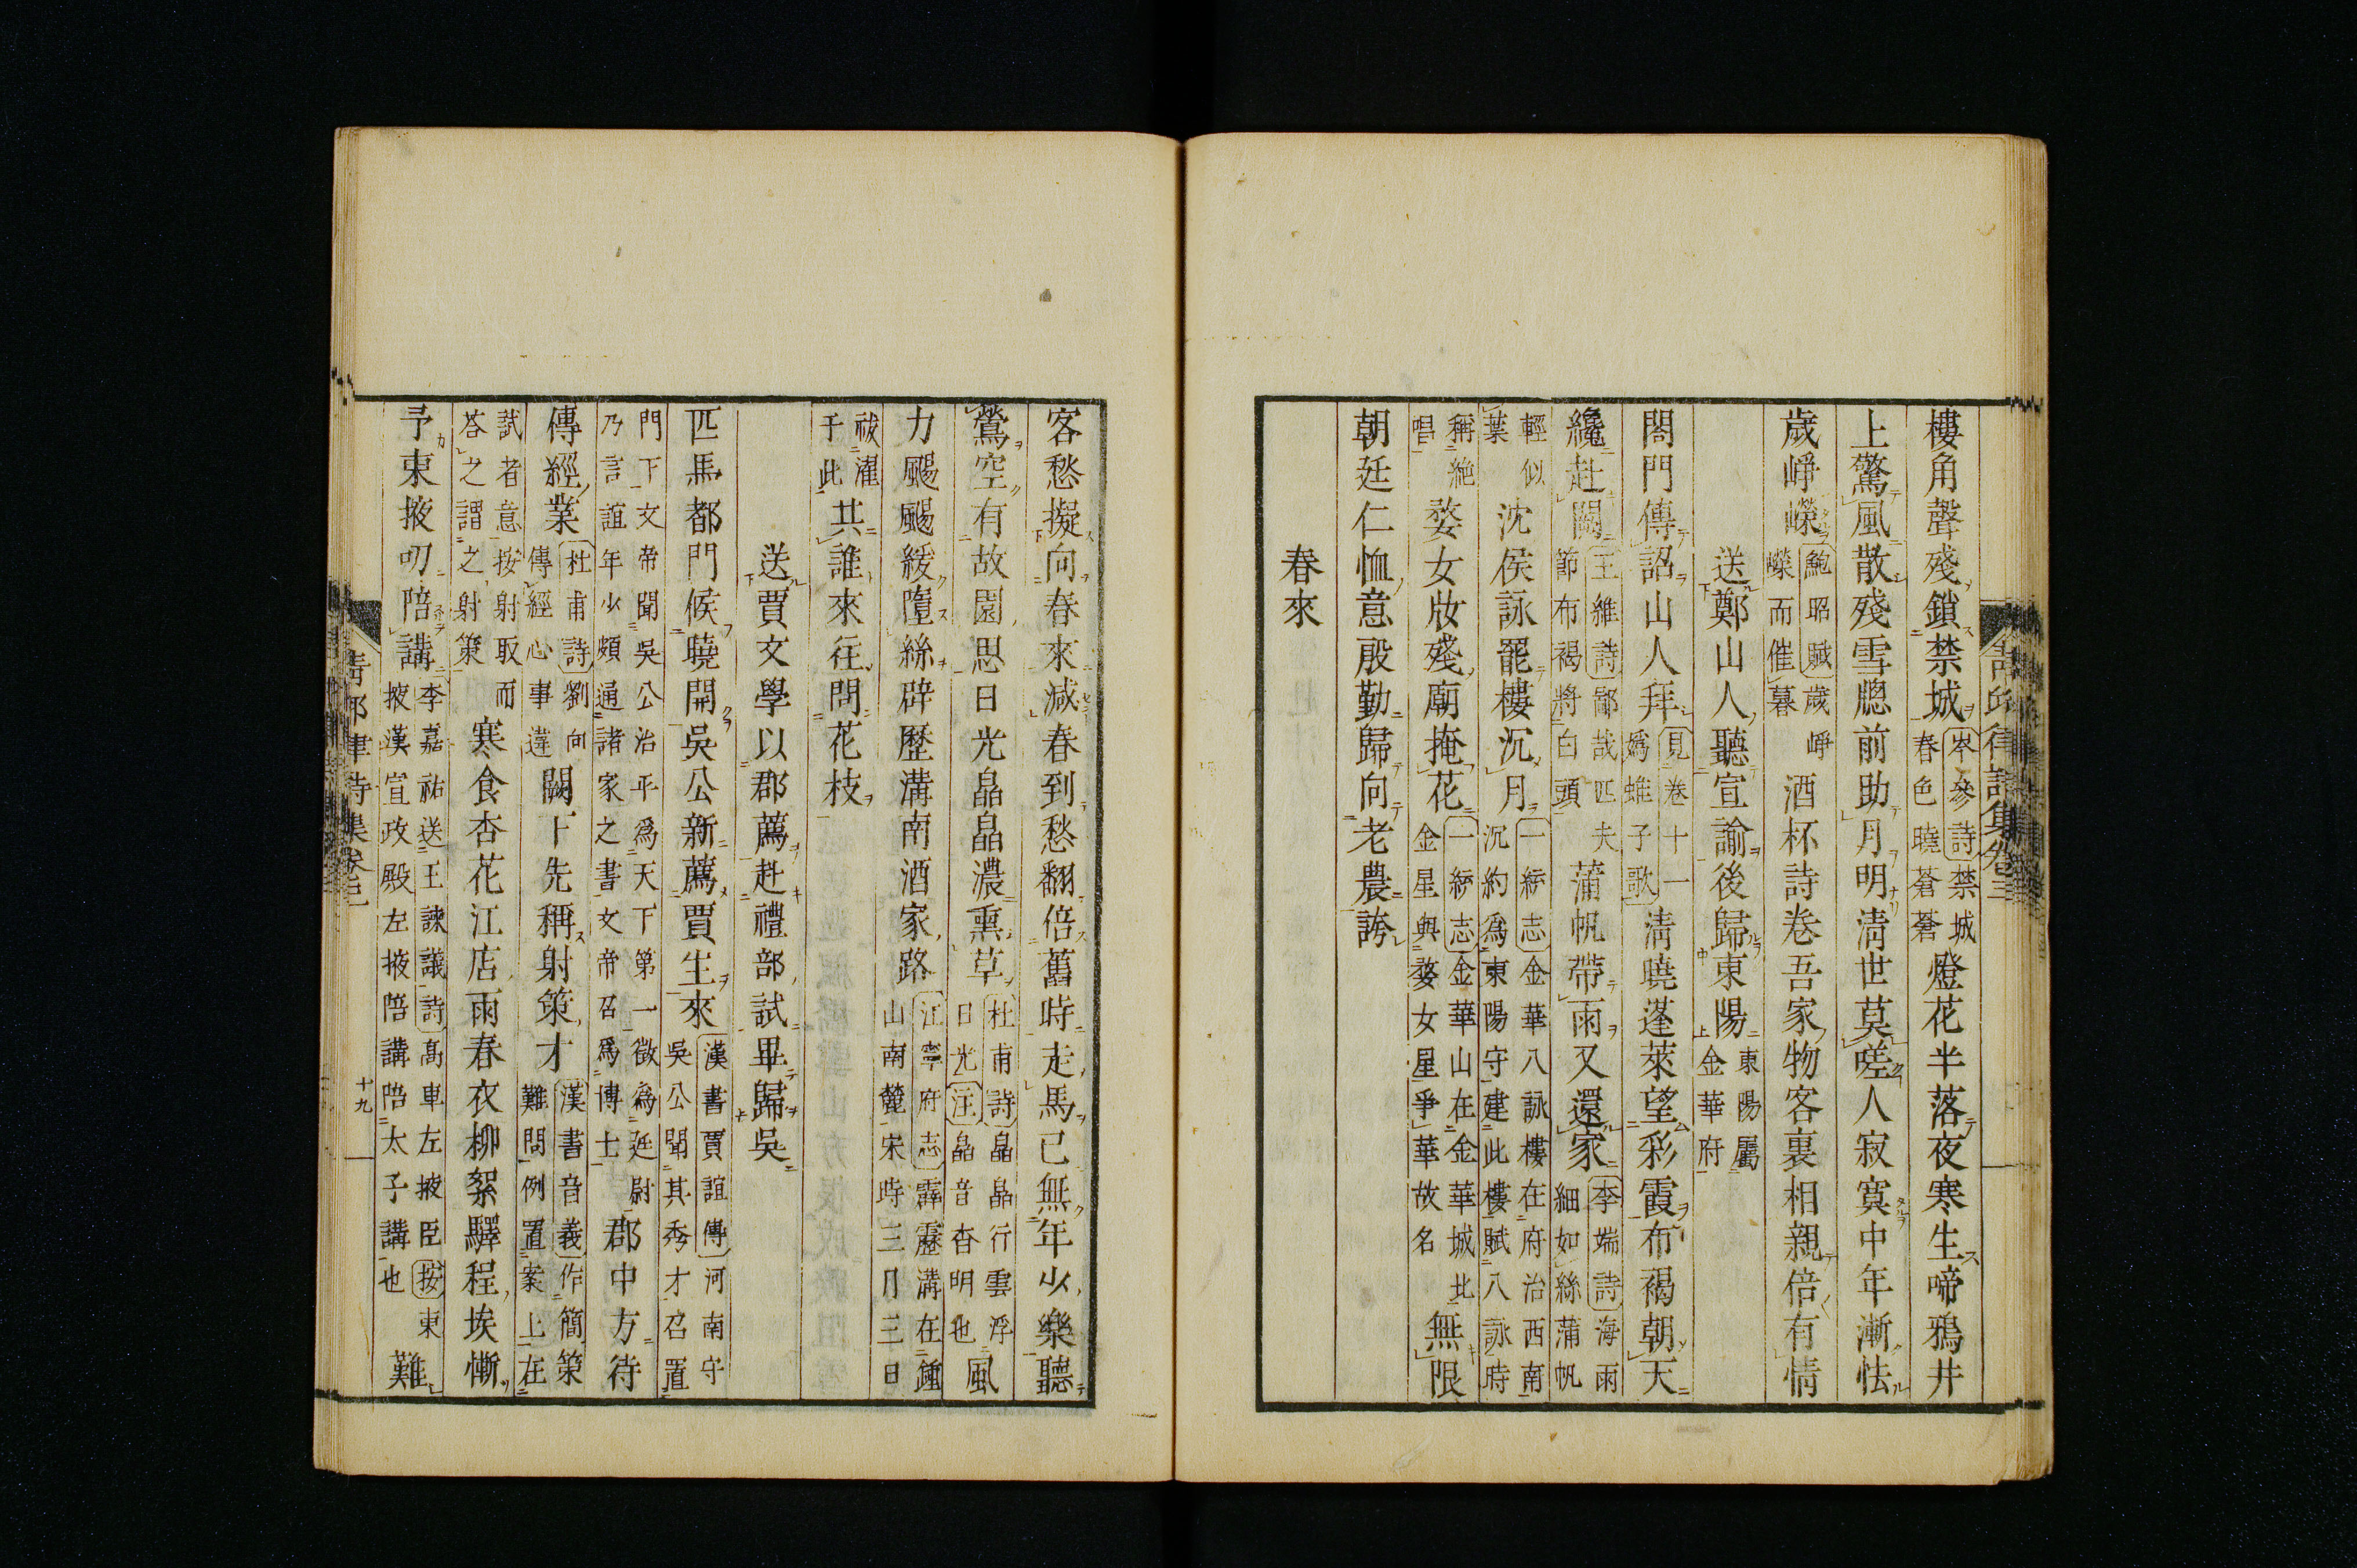 樓角聲殘鎖禁城岑參詩禁城春色曉蒼蒼燈花半落夜寒生啼鴉井
上驚風散殘雪牕前助月明淸世莫嗟人寂寞中年漸怯
歲崢嶸鮑昭賦歲崢嶸而催暮酒杯詩卷吾家物客裏相親倍有情
送鄭山人聽宣諭後歸東陽東陽屬金華府
閤門傳詔山人拜見卷十一嬀蜼子歌淸曉蓬萊望彩霞布褐朝天
纔赴闕王維詩鄙哉匹夫節布褐將白頭蒲帆帶雨又還家李端詩海雨細如絲蒲帆
輕似葉沈侯詠罷樓沉月一綂志金華八詠樓在府治西南沉約爲東陽守建此樓賦八詠時
稱絶唱婺女妝殘廟掩花一綂志金華山在金華城北金星與婺女星爭華故名無限
朝廷仁恤意殷勤歸向老農誇
春來
客愁擬向春來減春到愁翻倍舊時走馬已無年少樂聽
鶯空有故園思日光皛皛濃熏草杜甫詩皛皛行雲浮日光注皛音杳明也風
力颺颺緩墮絲辟歷溝南酒家路江寧府志霹靂溝在鍾山南麓宋時三月三日
祓濯于此共誰來往問花枝
送賈文學以郡薦赴禮部試畢歸吳
匹馬都門候曉開吳公新薦賈生來漢書賈誼傳河南守吳公聞其秀才召置
門下文帝聞吳公治平爲天下第一徵爲廷尉乃言誼年少頗通諸家之書文帝召爲博士郡中方待
傳經業杜甫詩劉向傳經心事違闕下先稱射策才漢書音義作簡策難問例置案上在
試者意按射取而荅之謂之射策寒食杏花江店雨春衣柳絮驛程埃慚
予東掖叨陪講李嘉祐送王諫議詩髙車左掖臣按東掖漢宣政殿左掖陪講陪太子講也難
十九